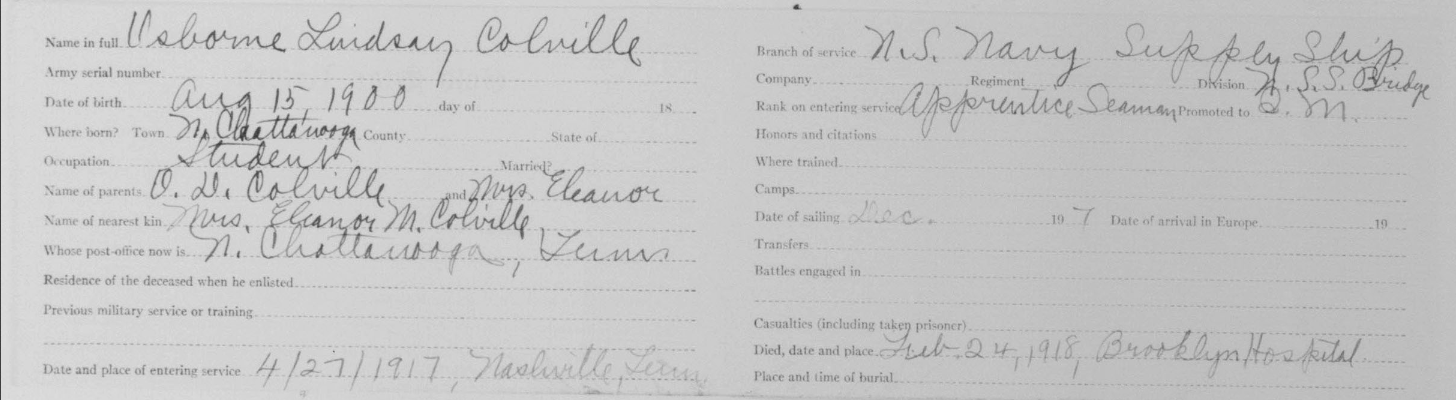 Name in full Osborne Lindsay Colville
Army serial number
Date of birth Aug 15, 1900 day of 18
Where born? Town N. Chattanooga County State of
Occupation Student Married?
Name of parents O. D. Colville and Mrs. Eleanor
Name of nearest kin Mrs. Eleanor M. Colville,
Whose post-office now is N. Chattanooga, Tenn
Residence of the deceased when he enlisted
Previous military service or training
Date and place of entering service 4/27/1917, Nashville, Tenn
Branch of service U.S. Navy Supply Ship
Company Regiment Division U.S.S. Bridge
Rank on entering service Apprentice Seaman Promoted to S. M.
Honors and citations
Where trained
Camps
Date of sailing Dec. 19 7 Date of arrival in Europe 19
Transfers
Battles engaged in
Casualties (including taken prisoner)
Died, date and place Feb. 24, 1918, Brooklyn, Hospital.
Place and time of burial